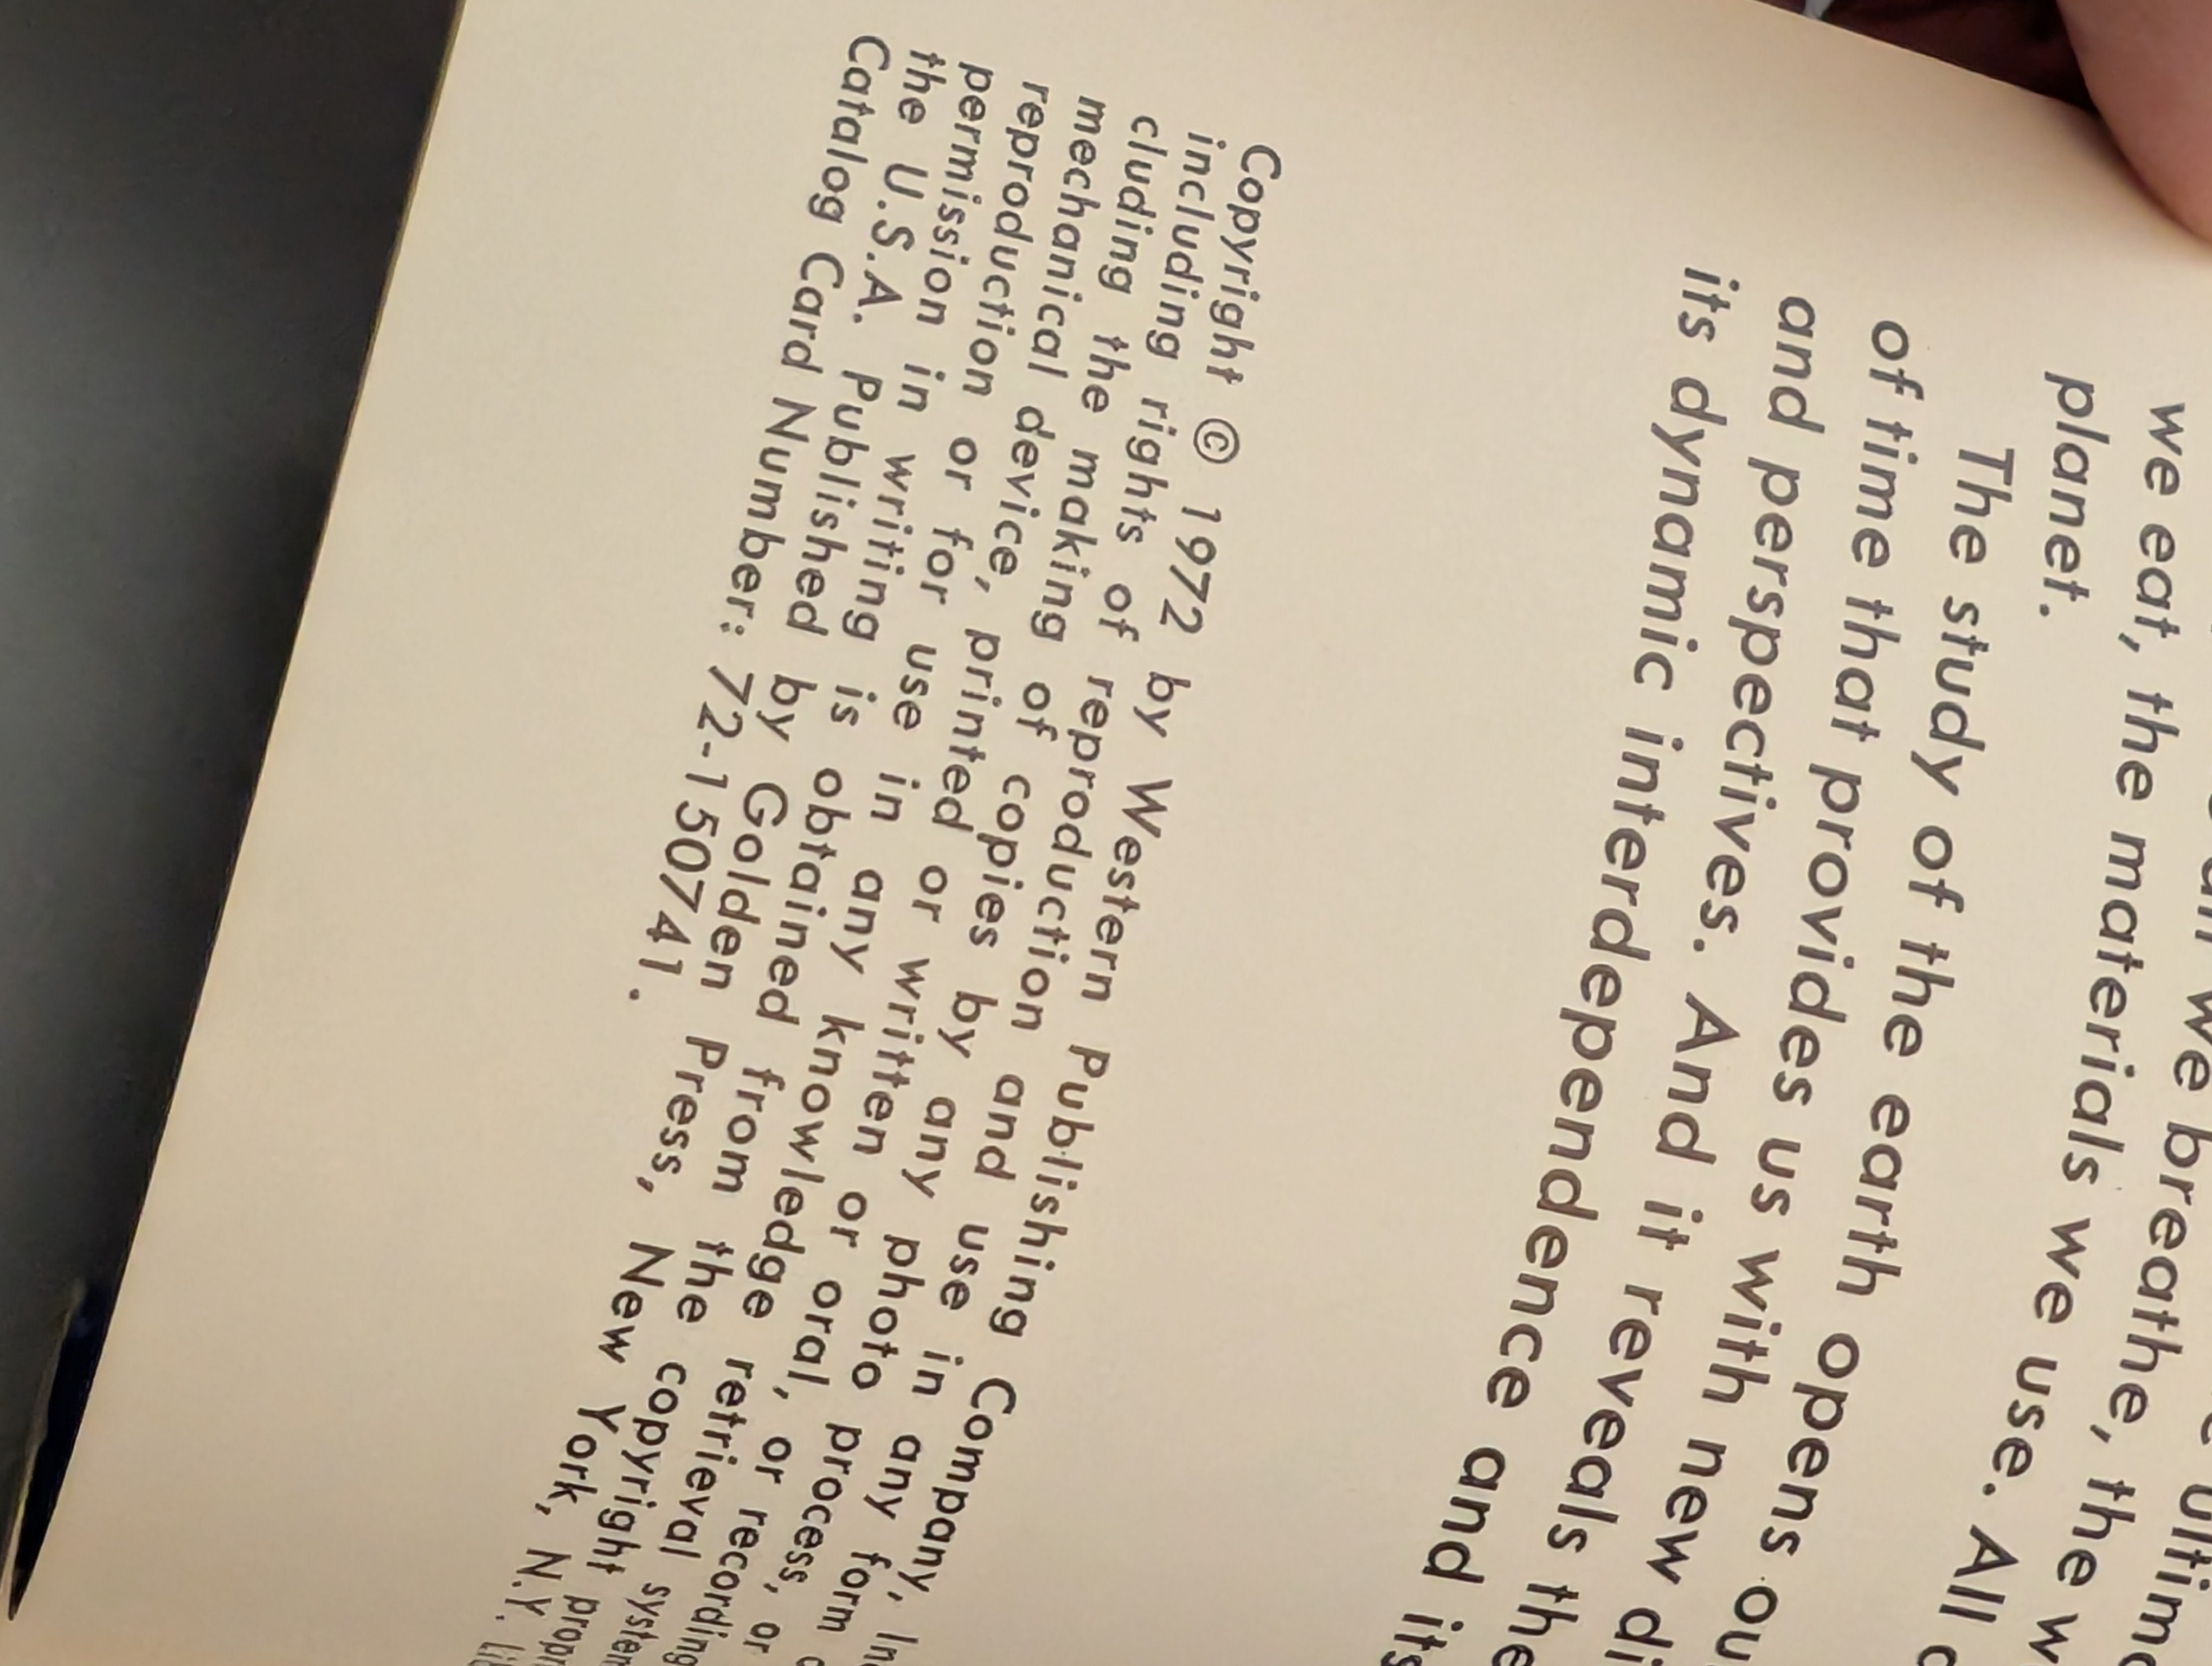 we breathe, the w
we eat, the materials we use. All
planet.
The study of the earth opens ou
of time that provides us with new di
and perspectives. And it reveals the
its dynamic interdependence and its
Copyright © 1972 by Western Publishing Company, Inc
including rights of reproduction and use in any form
cluding the making of copies by any photo process, or
mechanical device, printed or written or oral, or recording
reproduction or for use in any knowledge retrieval system
permission in writing is obtained from the copyright propr
the U.S.A. Published by Golden Press, New York, N.Y. Lib
Catalog Card Number: 72-150741.